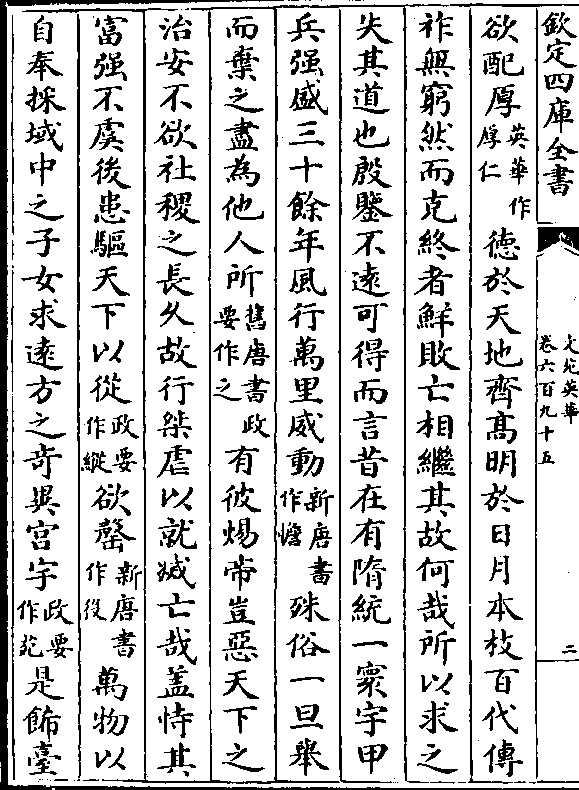 欽定四庫全書
文苑英華
卷六百九十五
二
欲配厚英華作厚仁德於天地齊髙明於日月本枝百代傳
祚無窮然而克終者鮮敗亡相繼其故何哉所以求之
失其道也殷鑒不遠可得而言昔在有隋統一寰宇甲
兵强盛三十餘年風行萬里威動新唐書作憺殊俗一旦舉
而棄之盡為他人所舊唐書政要作之有彼煬帝豈惡天下之
治安不欲社稷之長久故行桀虐以就滅亡哉盖恃其
富强不虞後患驅天下以從政要作縱欲罄新唐書作役萬物以
自奉採域中之子女求逺方之奇異宫宇政要作苑是飾臺